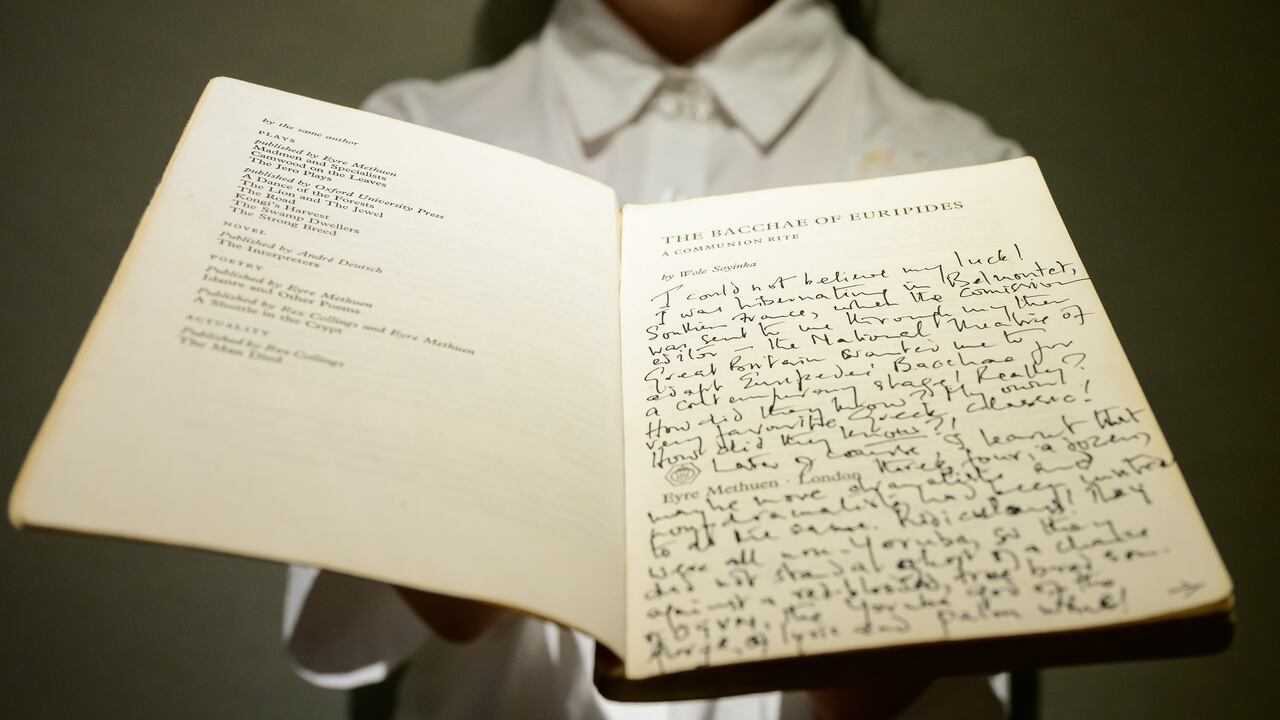 by the same author
PLAYS
published by Eyre Methuen
Madmen and Specialists
Camwood on the Leaves
The Jero Plays
published by Oxford University Press
A Dance of the Forests
The Lion and The Jewel
The Road
Kongi's Harvest
The Swamp Dwellers
The Strong Breed
NOVEL
Published by André Deutsch
The Interpreters
POETRY
Published by Eyre Methuen
Idanre and Other Poems
Published by Rex Collings and Eyre Methuen
A Shuttle in the Crypt
ACTUALITY
Published by Rex Collings
The Man Died
THE BACCHAE OF EURIPIDES
A COMMUNION RITE
by Wole Soyinka
I could not believe my luck!
I was hibernating in Belmontet,
Southern France, when the commission
was sent to me through my then
editor – the National Theatre of
Great Britain wanted me to
adapt Euripedes' Bacchae for
a contemporary stage! Really?
How did they know? My own
very favourite Greek classic!
How did they know?!
Later of course, I learnt that
Eyre Methuen · London
three, four, a dozen,
maybe more dramatists and
non-dramatists had been invited
to do the same. Ridiculous! They
were all non-Yoruba, so they
did not stand a ghost of a chance
against a red-blooded, true bred son
of Ogun, the Yoruba god of the
forge, of lyric and palm wine!